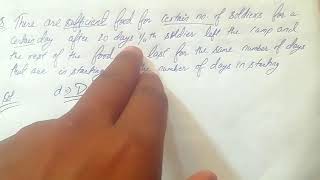 There are sufficient food for certain no. of soldiers for a
certain day after 20 days 1/4th soldier left the camp and
the rest of the food last for the same number of days
that are in starting the number of days in starting
d → D